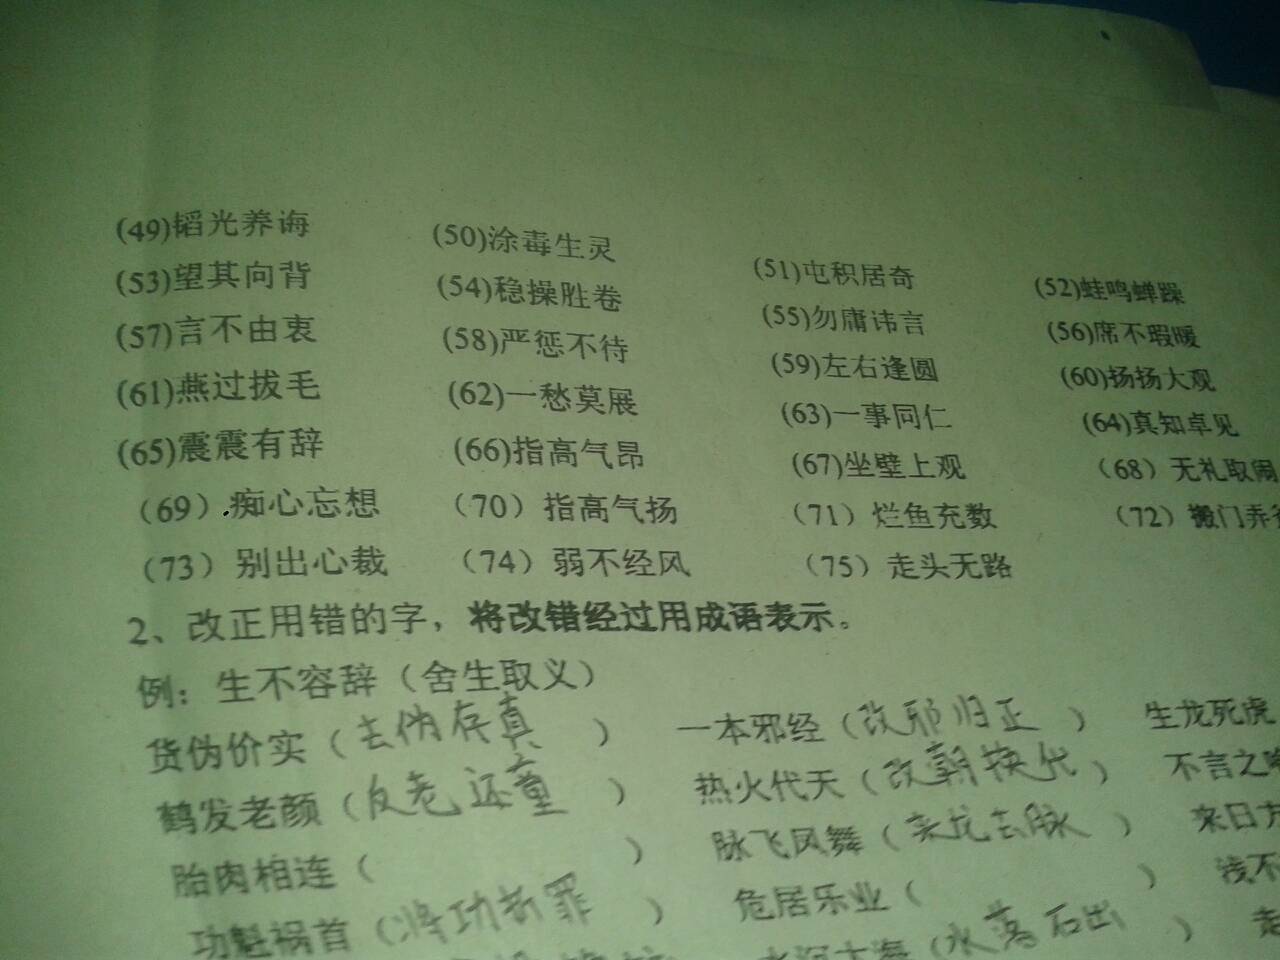 (49)韬光养诲 (50)涂毒生灵 (51)屯积居奇 (52)蛙鸣蝉躁
(53)望其向背 (54)稳操胜卷 (55)勿庸讳言 (56)席不瑕暖
(57)言不由衷 (58)严惩不待 (59)左右逢圆 (60)扬扬大观
(61)燕过拔毛 (62)一愁莫展 (63)一事同仁 (64)真知卓见
(65)震震有辞 (66)指高气昂 (67)坐壁上观 (68）无礼取闹
（69）痴心忘想 （70）指高气扬 （71）烂鱼充数 （72）搬门弄
（73）别出心裁 （74）弱不经风 （75）走头无路
2、改正用错的字，将改错经过用成语表示。
例：生不容辞（舍生取义）
货伪价实（去伪存真） 一本邪经（改邪归正） 生龙死虎
鹤发老颜（反老还童） 热火代天（改朝换代） 不言之
胎肉相连（ ） 脉飞凤舞（来龙去脉） 来日方
功魁祸首（将功折罪） 危居乐业（ ） 浅不
水沉大海（水落石出） 走